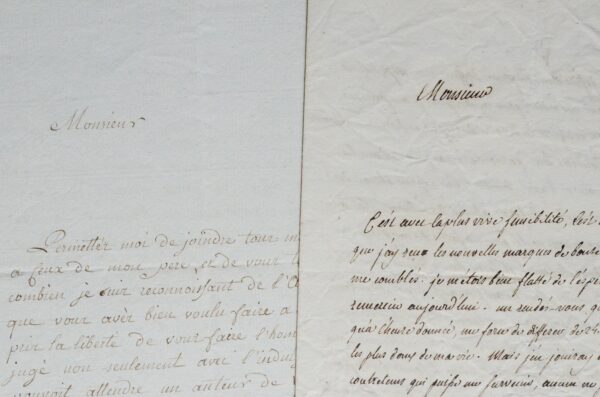 Monsieur
Permettés moi de joindre tour mes
a ceux de mon pere, et de vous
combien je suis reconnoissant de l'
que vous avés bien voulu faire a
prir la liberté de vous faire l'hom
jugé non seulement avec l'indul
pouvoit attendre un auteur de
Monsieur
C'est avec la plus vive sensibilité,
que j'ay reçu les nouvelles marques de bonté
me comblés. je m'étois bien flatté de l'espé
remercier aujourd'hui. un rendés-vous qu
qu'à l'heure donnée, me force de différer de
les plus doux de ma vie. Mais j'en jouiray
contretems qui puisse me survenir, aucun ne